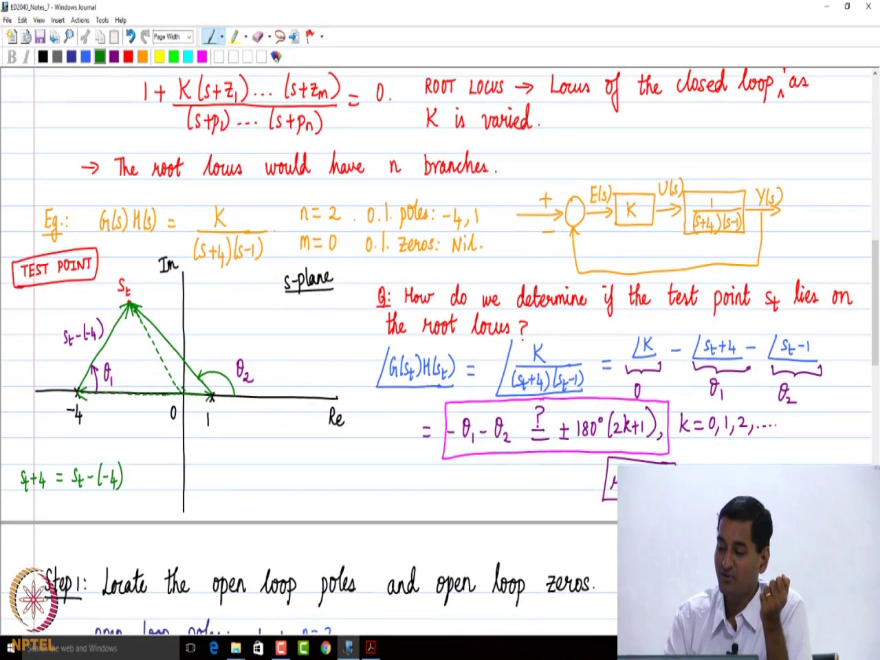 ED2040_Notes_7 - Windows Journal
File Edit View Insert Actions Tools Help
Page Width
B I
1 + K(s+z1)... (s+zm) / (s+p1)... (s+pn) = 0.
ROOT LOCUS → Locus of the closed loop, as
K is varied.
→ The root locus would have n branches.
Eg.: G(s)H(s) = K / (s+4)(s-1)
n=2. o.l. poles: -4, 1
m=0 o.l. zeros: Nil.
+ E(s) K U(s) 1 / (s+4)(s-1) Y(s)
−
TEST POINT
Im
s-plane
st
st-(-4)
θ1
θ2
-4 0 1 Re
st+4 = st-(-4)
Q: How do we determine if the test point st lies on
the root locus?
∠G(st)H(st) = ∠K / (st+4)(st-1) = ∠K − ∠st+4 − ∠st-1
0 θ1 θ2
= -θ1 - θ2 ?= ± 180° (2k+1), k=0,1,2,....
Step 1: Locate the open loop poles and open loop zeros.
NPTEL
the web and Windows